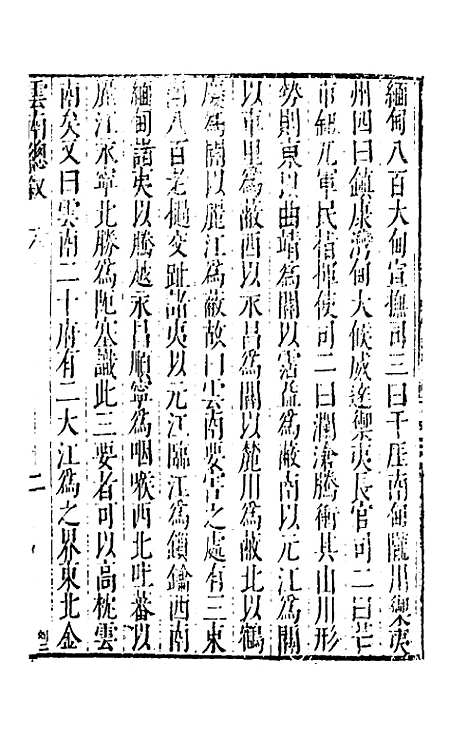 緬甸八百大甸宣撫司三曰干崖南甸隴川禦夷
州四曰鎮康灣甸大候威遠禦夷長官司二曰芒
市鈕兀軍民指揮使司二曰瀾滄騰衝其山川形
勢則東以曲靖為關以霑益為蔽南以元江為關
以車里為蔽西以永昌為關以麓川為蔽北以鶴
慶為關以麗江為蔽故曰雲南要害之處有三東
南八百老撾交趾諸夷以元江臨江為鎖鑰西南
緬甸諸夷以騰越永昌順寧為咽喉西北吐蕃以
麗江永寧北勝為阨塞識此三要者可以高枕雲
南矣又曰雲南二十府有二大江為之界東北金
雲南總敘
二